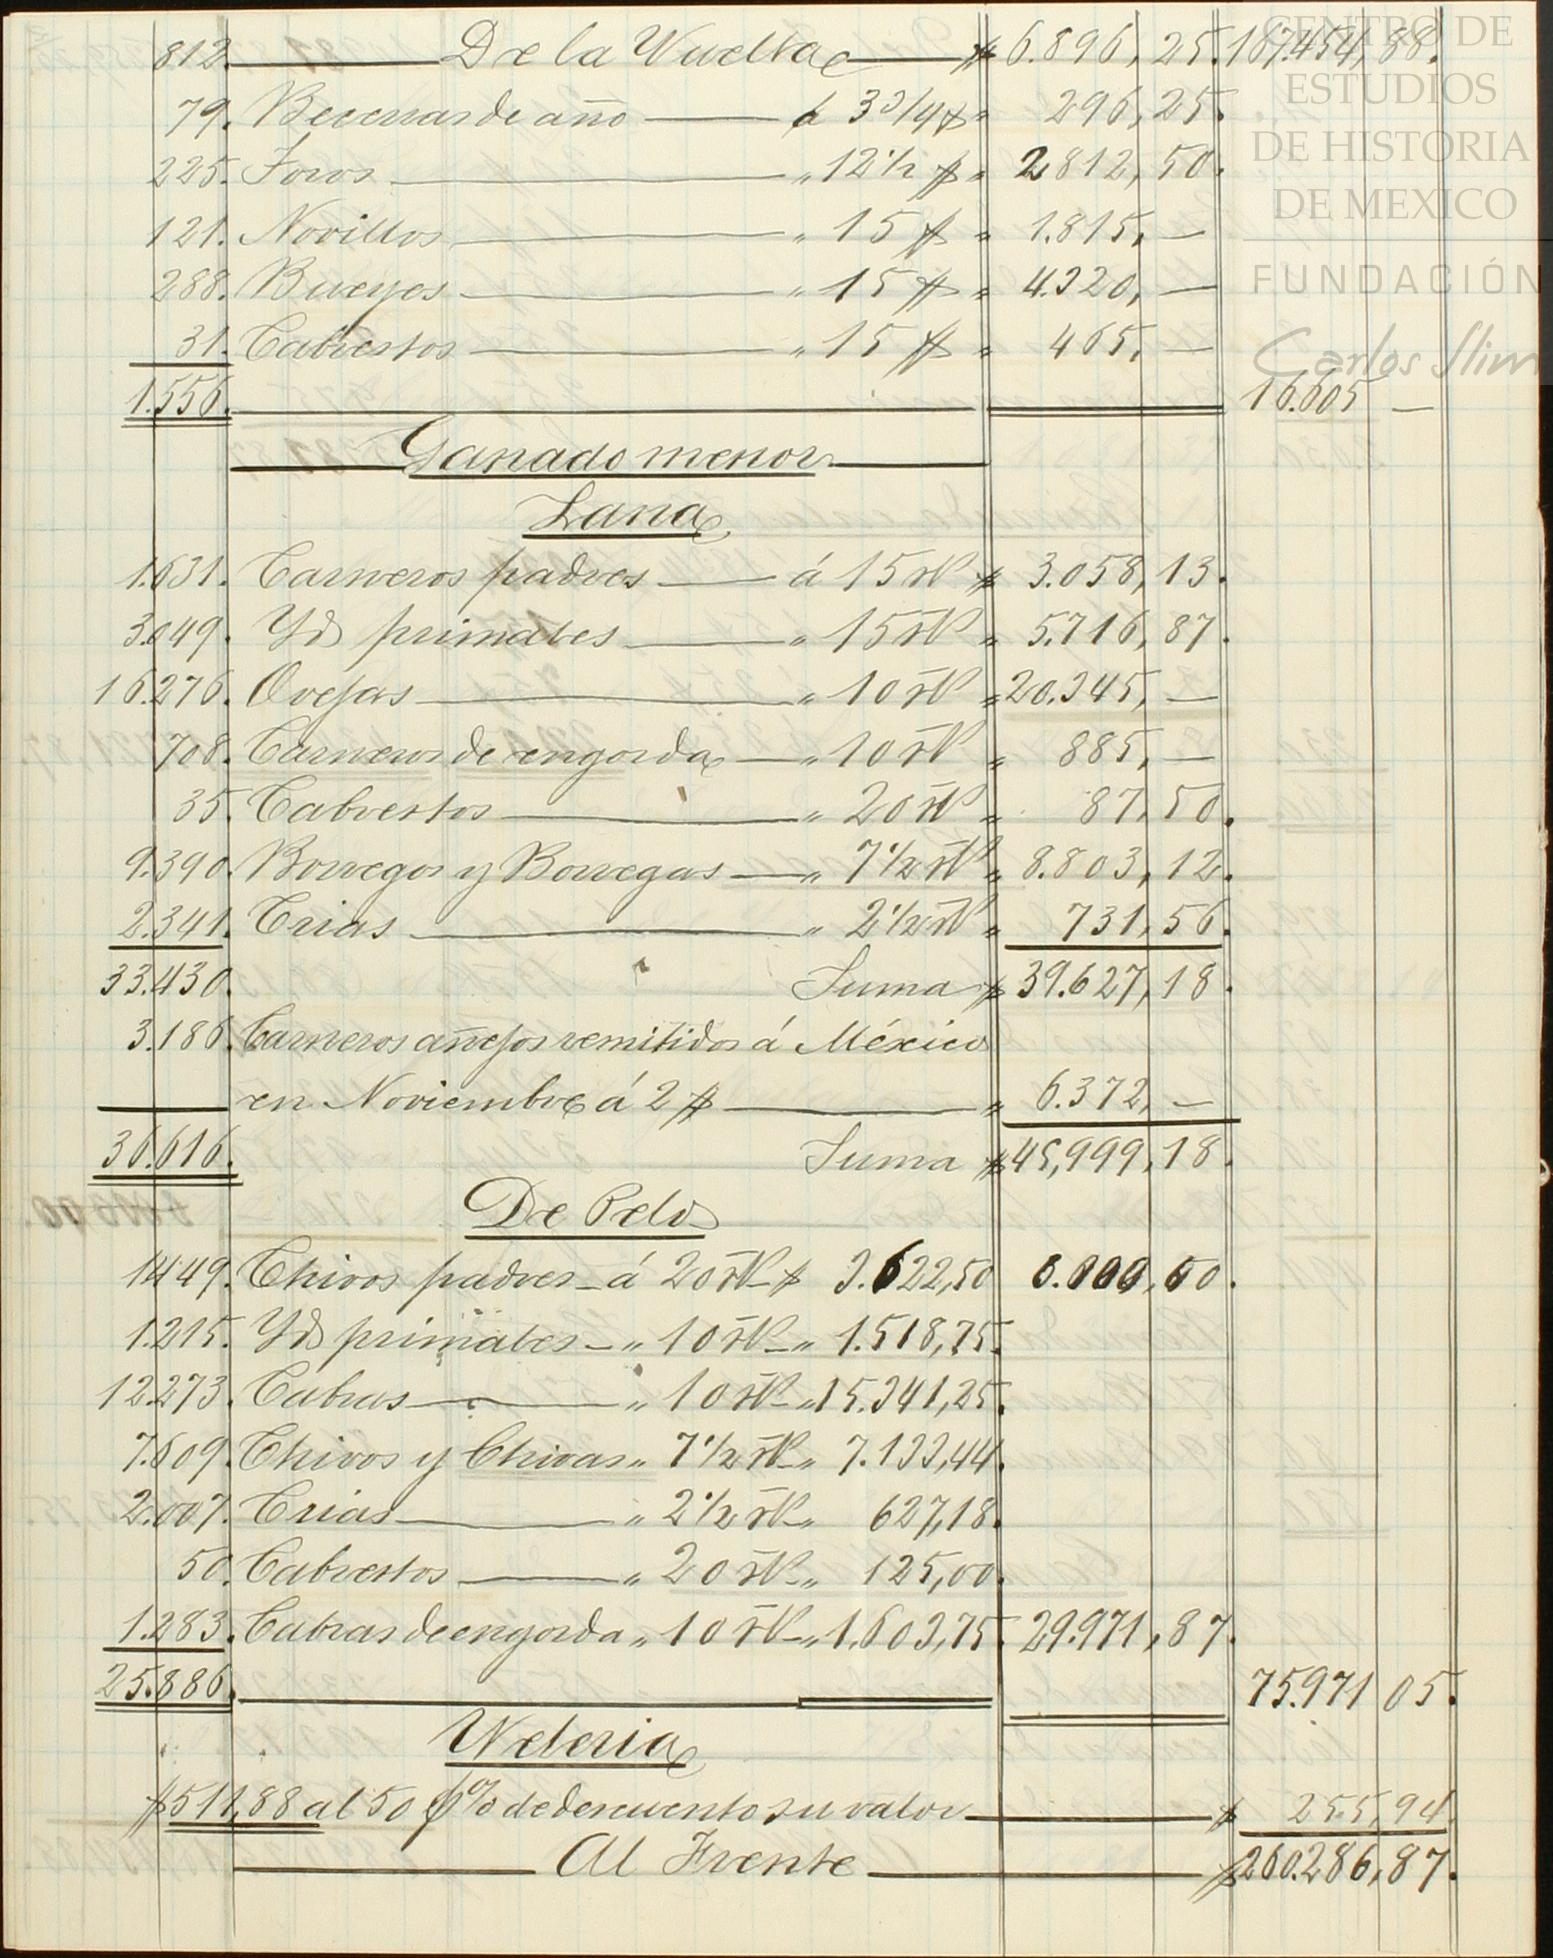 812. De la Vuelta $ 6.896, 25. 167.454, 88.
79. Becerras de año á 3 3/4 $ " 296, 25.
225. Toros " 12 1/2 $ " 2.812, 50.
121. Novillos " 15 $ " 1.815, —
288. Bueyes " 15 $ " 4.320, —
31. Cabrestos " 15 $ " 465, —
1.556. 16.605 —
Ganado menor
Lana
1.631. Carneros padres á 15 rs $ 3.058, 13.
3.049. Yd primales " 15 rs " 5.716, 87.
16.276. Ovejas " 10 rs " 20.345, —
708. Carneros de engorda " 10 rs " 885, —
35. Cabrestos " 20 rs " 87, 50.
9.390. Borregos y Borregas " 7 1/2 rs " 8.803, 12.
2.341. Crias " 2 1/2 rs " 731, 56.
33.430. Suma $ 39.627, 18.
3.186. Carneros añejos remitidos á México
en Noviembre á 2 $ " 6.372, —
36.616. Suma $ 45,999, 18.
De Pelo
1449. Chivos padres á 20 rs $ 3.622,50
1.215. Yd primales " 10 rs " 1.518,75.
12.273. Cabras " 10 rs " 15.341,25.
7.609. Chivos y Chivas " 7 1/2 rs " 7.133,44.
2.007. Crias " 2 1/2 rs " 627,18.
50. Cabrestos " 20 rs " 125,00.
1.283. Cabras de engorda " 10 rs " 1.603,75. 29.971, 87.
25.886. 75.971 05.
Veleria
$511,88 al 50 % de descuento su valor $ 255,94.
Al Frente $260.286,87.
CENTRO DE
ESTUDIOS
DE HISTORIA
DE MEXICO
FUNDACIÓN
Carlos Slim